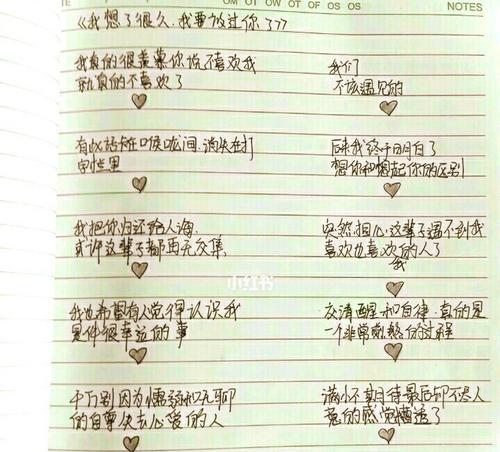 OM OT OW OT OF OS OS
NOTES
《我想了很久,我要放过你了??
我真的很羡慕你说不喜欢我
就真的不喜欢了
我们
不该遇见的
有些话卡在喉咙间,消失在打
字框里
后来我终于明白了
想你和想起你的区别
我把你归还给人海
或许这辈子都再无交集
突然担心这辈子遇不到我
喜欢也喜欢的人了
我
小红书
我也希望有人觉得认识我
是件很幸运的事
变清醒和自律,真的是
一个非常煎熬的过程
千万别因为懦弱和无聊
的自尊失去心爱的人
满心期待最后却不尽人
意的感觉糟透了